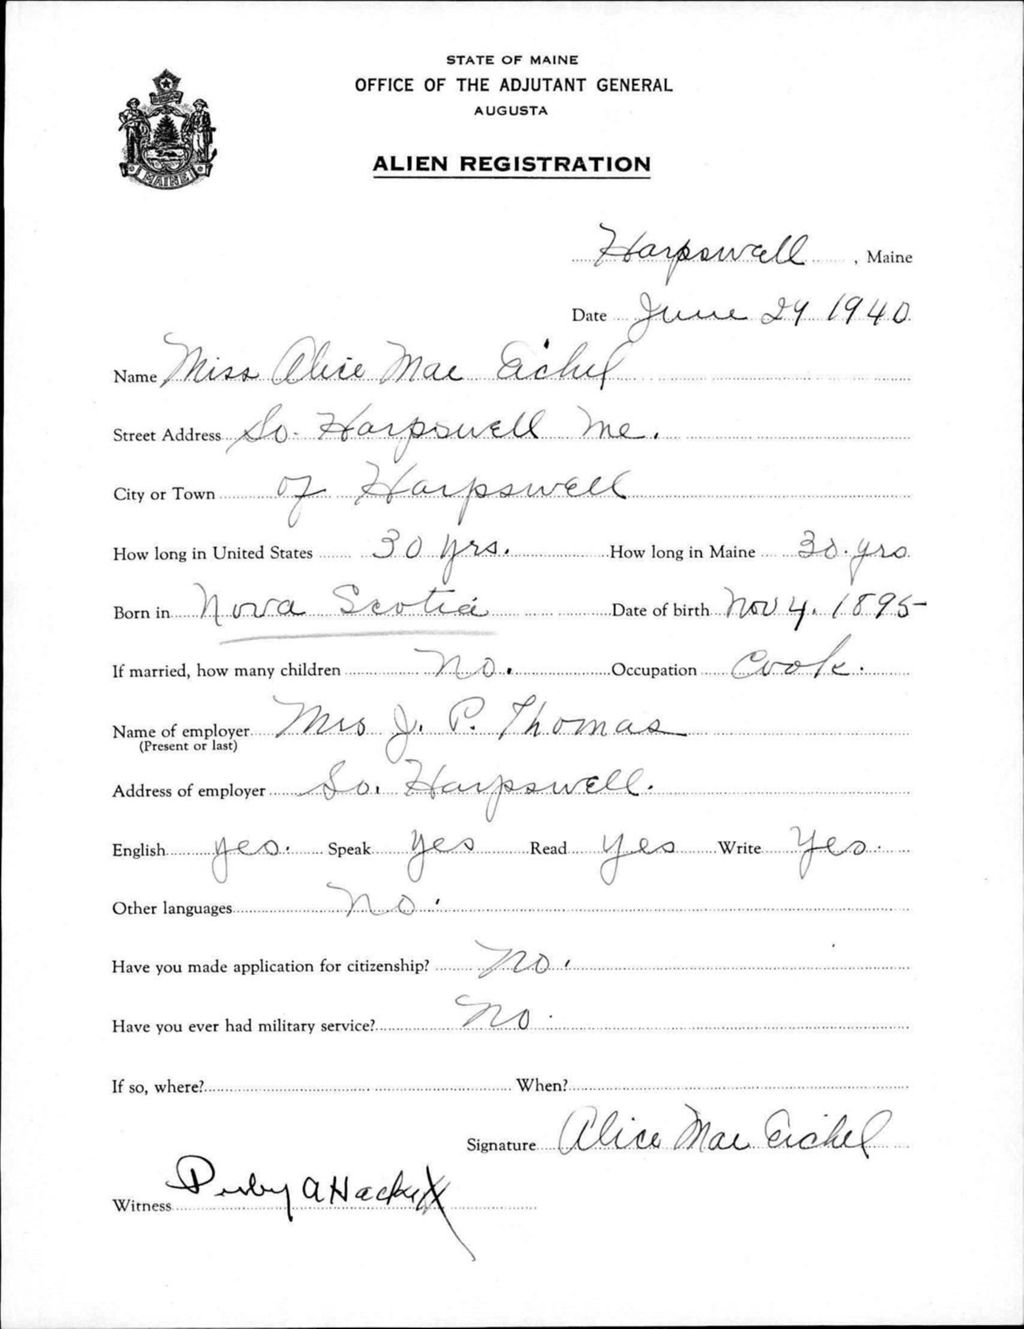 STATE OF MAINE
OFFICE OF THE ADJUTANT GENERAL
AUGUSTA
MAINE
ALIEN REGISTRATION
Harpswell, Maine
Date June 24 1940
Name Miss Alice Mae Eichel
Street Address So. Harpswell Me.
City or Town of Harpswell
How long in United States 30 yrs. How long in Maine 30. yrs
Born in Nova Scotia Date of birth Nov 4. 1895
If married, how many children No. Occupation Cook.
Name of employer Mrs J. P. Thomas
(Present or last)
Address of employer So. Harpswell.
English yes. Speak yes Read yes Write Yes.
Other languages No.
Have you made application for citizenship? No.
Have you ever had military service? No.
If so, where? When?
Signature Alice Mae Eichel
Witness A Hackett